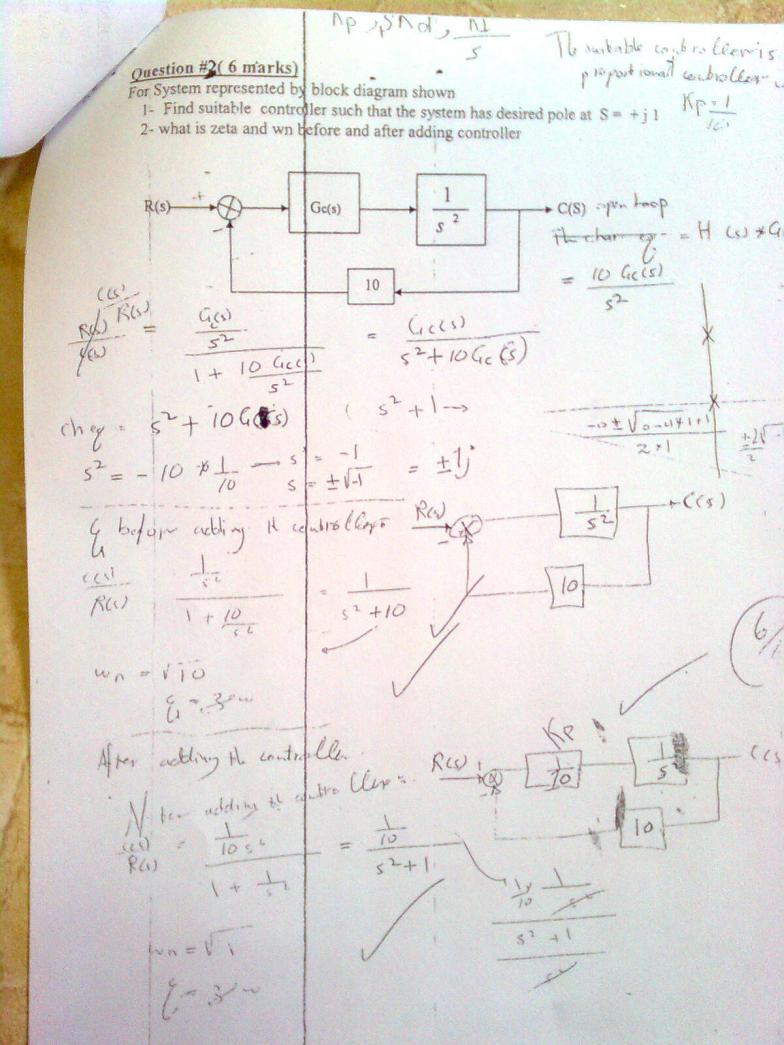 Kp, SKd, KI/s
The suitable controller is
proportional controller
Kp = 1/10
Question #2( 6 marks)
For System represented by block diagram shown
1- Find suitable controller such that the system has desired pole at S= +j 1
2- what is zeta and wn before and after adding controller
R(s) + - Gc(s) 1/s² C(S)
10
open loop
The char eq = H(s)*G
= 10 Gc(s)/s²
C(s)/R(s)
R(s)/C(s) = (Gc(s)/s²)/(1 + 10 Gc(s)/s²) = Gc(s)/(s²+10Gc(s))
ch eq = s² + 10G(s) s²+1→
s² = -10 * 1/10 — s² = -1
s = ±√-1 = ±1j
ξ before adding the controller
R(s) - 1/s² C(s)
10
C(s)/R(s) (1/s²)/(1 + 10/s²) = 1/(s²+10)
wn = √10
ξ = zero
6/
After adding the controller
R(s) + - Kp 1/10 1/s² C(s
10
After adding the controller
C(s)/R(s) = (1/10s²)/(1 + 1/s²) = (1/10)/(s²+1)
wn = √1
ξ = zero